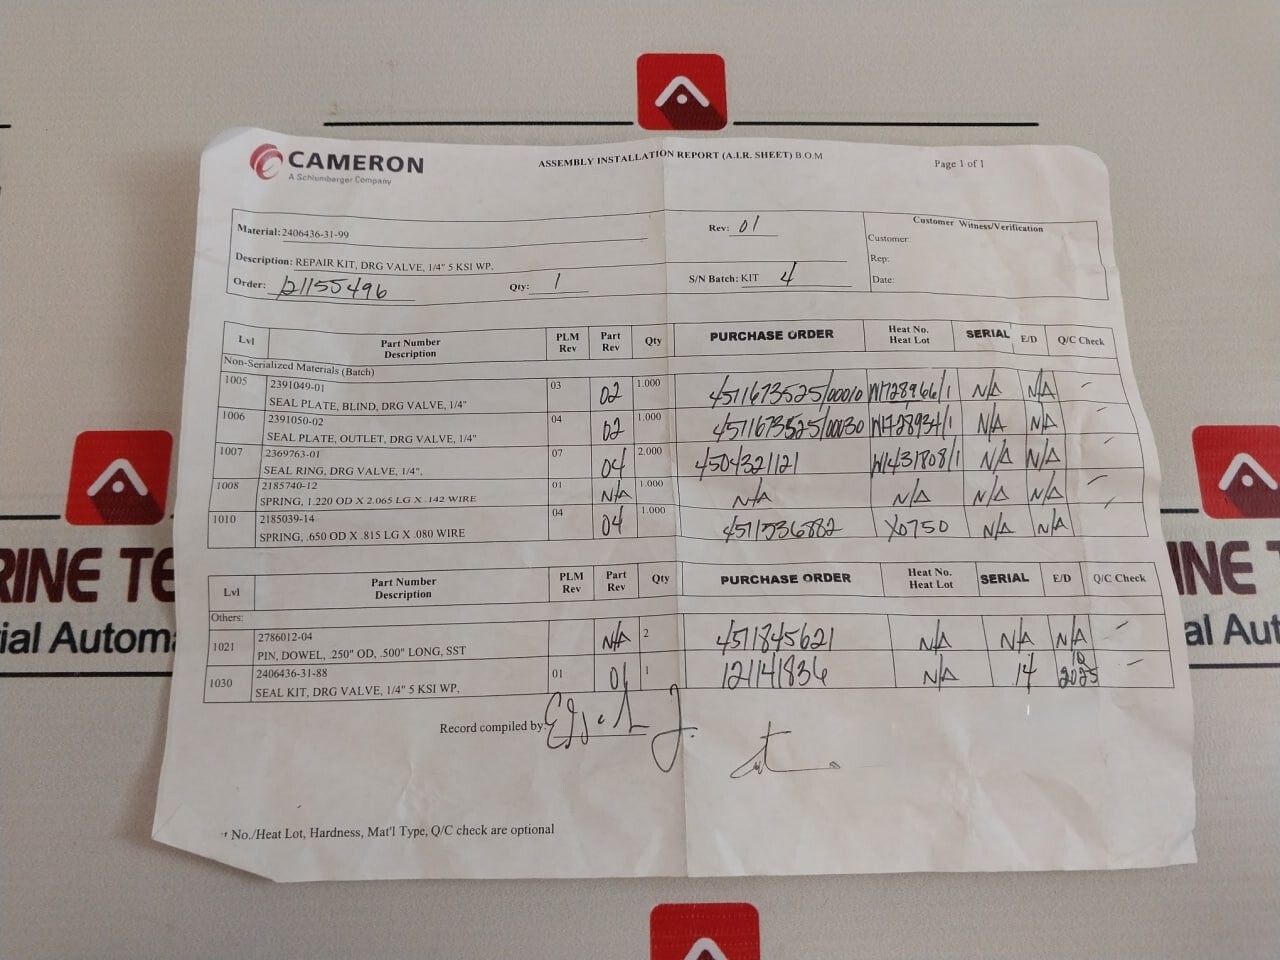 CAMERON
A Schlumberger Company
ASSEMBLY INSTALLATION REPORT (A.I.R. SHEET) B.O.M
Page 1 of 1
Material: 2406436-31-99
Rev: 01
Customer Witness/Verification
Customer:
Description: REPAIR KIT, DRG VALVE, 1/4" 5 KSI WP,
Rep:
Order: 121155496 Qty: 1 S/N Batch: KIT 4
Date:
Lvl Part Number Description PLM Rev Part Rev Qty PURCHASE ORDER Heat No. Heat Lot SERIAL E/D Q/C Check
Non-Serialized Materials (Batch)
1005 2391049-01 03 02 1.000 4511673525/00010 W1728966/1 N/A N/A
SEAL PLATE, BLIND, DRG VALVE, 1/4"
1006 2391050-02 04 02 1.000 4511673525/00030 W1728934/1 N/A N/A
SEAL PLATE, OUTLET, DRG VALVE, 1/4"
1007 2369763-01 07 04 2.000 4504321121 W1431808/1 N/A N/A
SEAL RING, DRG VALVE, 1/4".
1008 2185740-12 01 N/A 1.000 N/A N/A N/A N/A
SPRING, 1.220 OD X 2.065 LG X .142 WIRE
1010 2185039-14 04 04 1.000 4511336882 X0750 N/A N/A
SPRING, .650 OD X .815 LG X .080 WIRE
Lvl Part Number Description PLM Rev Part Rev Qty PURCHASE ORDER Heat No. Heat Lot SERIAL E/D Q/C Check
Others:
1021 2786012-04 N/A 2 4511845621 N/A N/A N/A
PIN, DOWEL, .250" OD, .500" LONG, SST
1030 2406436-31-88 01 01 1 121141836 N/A 14 10 2025
SEAL KIT, DRG VALVE, 1/4" 5 KSI WP,
Record compiled by:
No./Heat Lot, Hardness, Mat'l Type, Q/C check are optional
RINE TE
ial Automa
INE T
al Aut